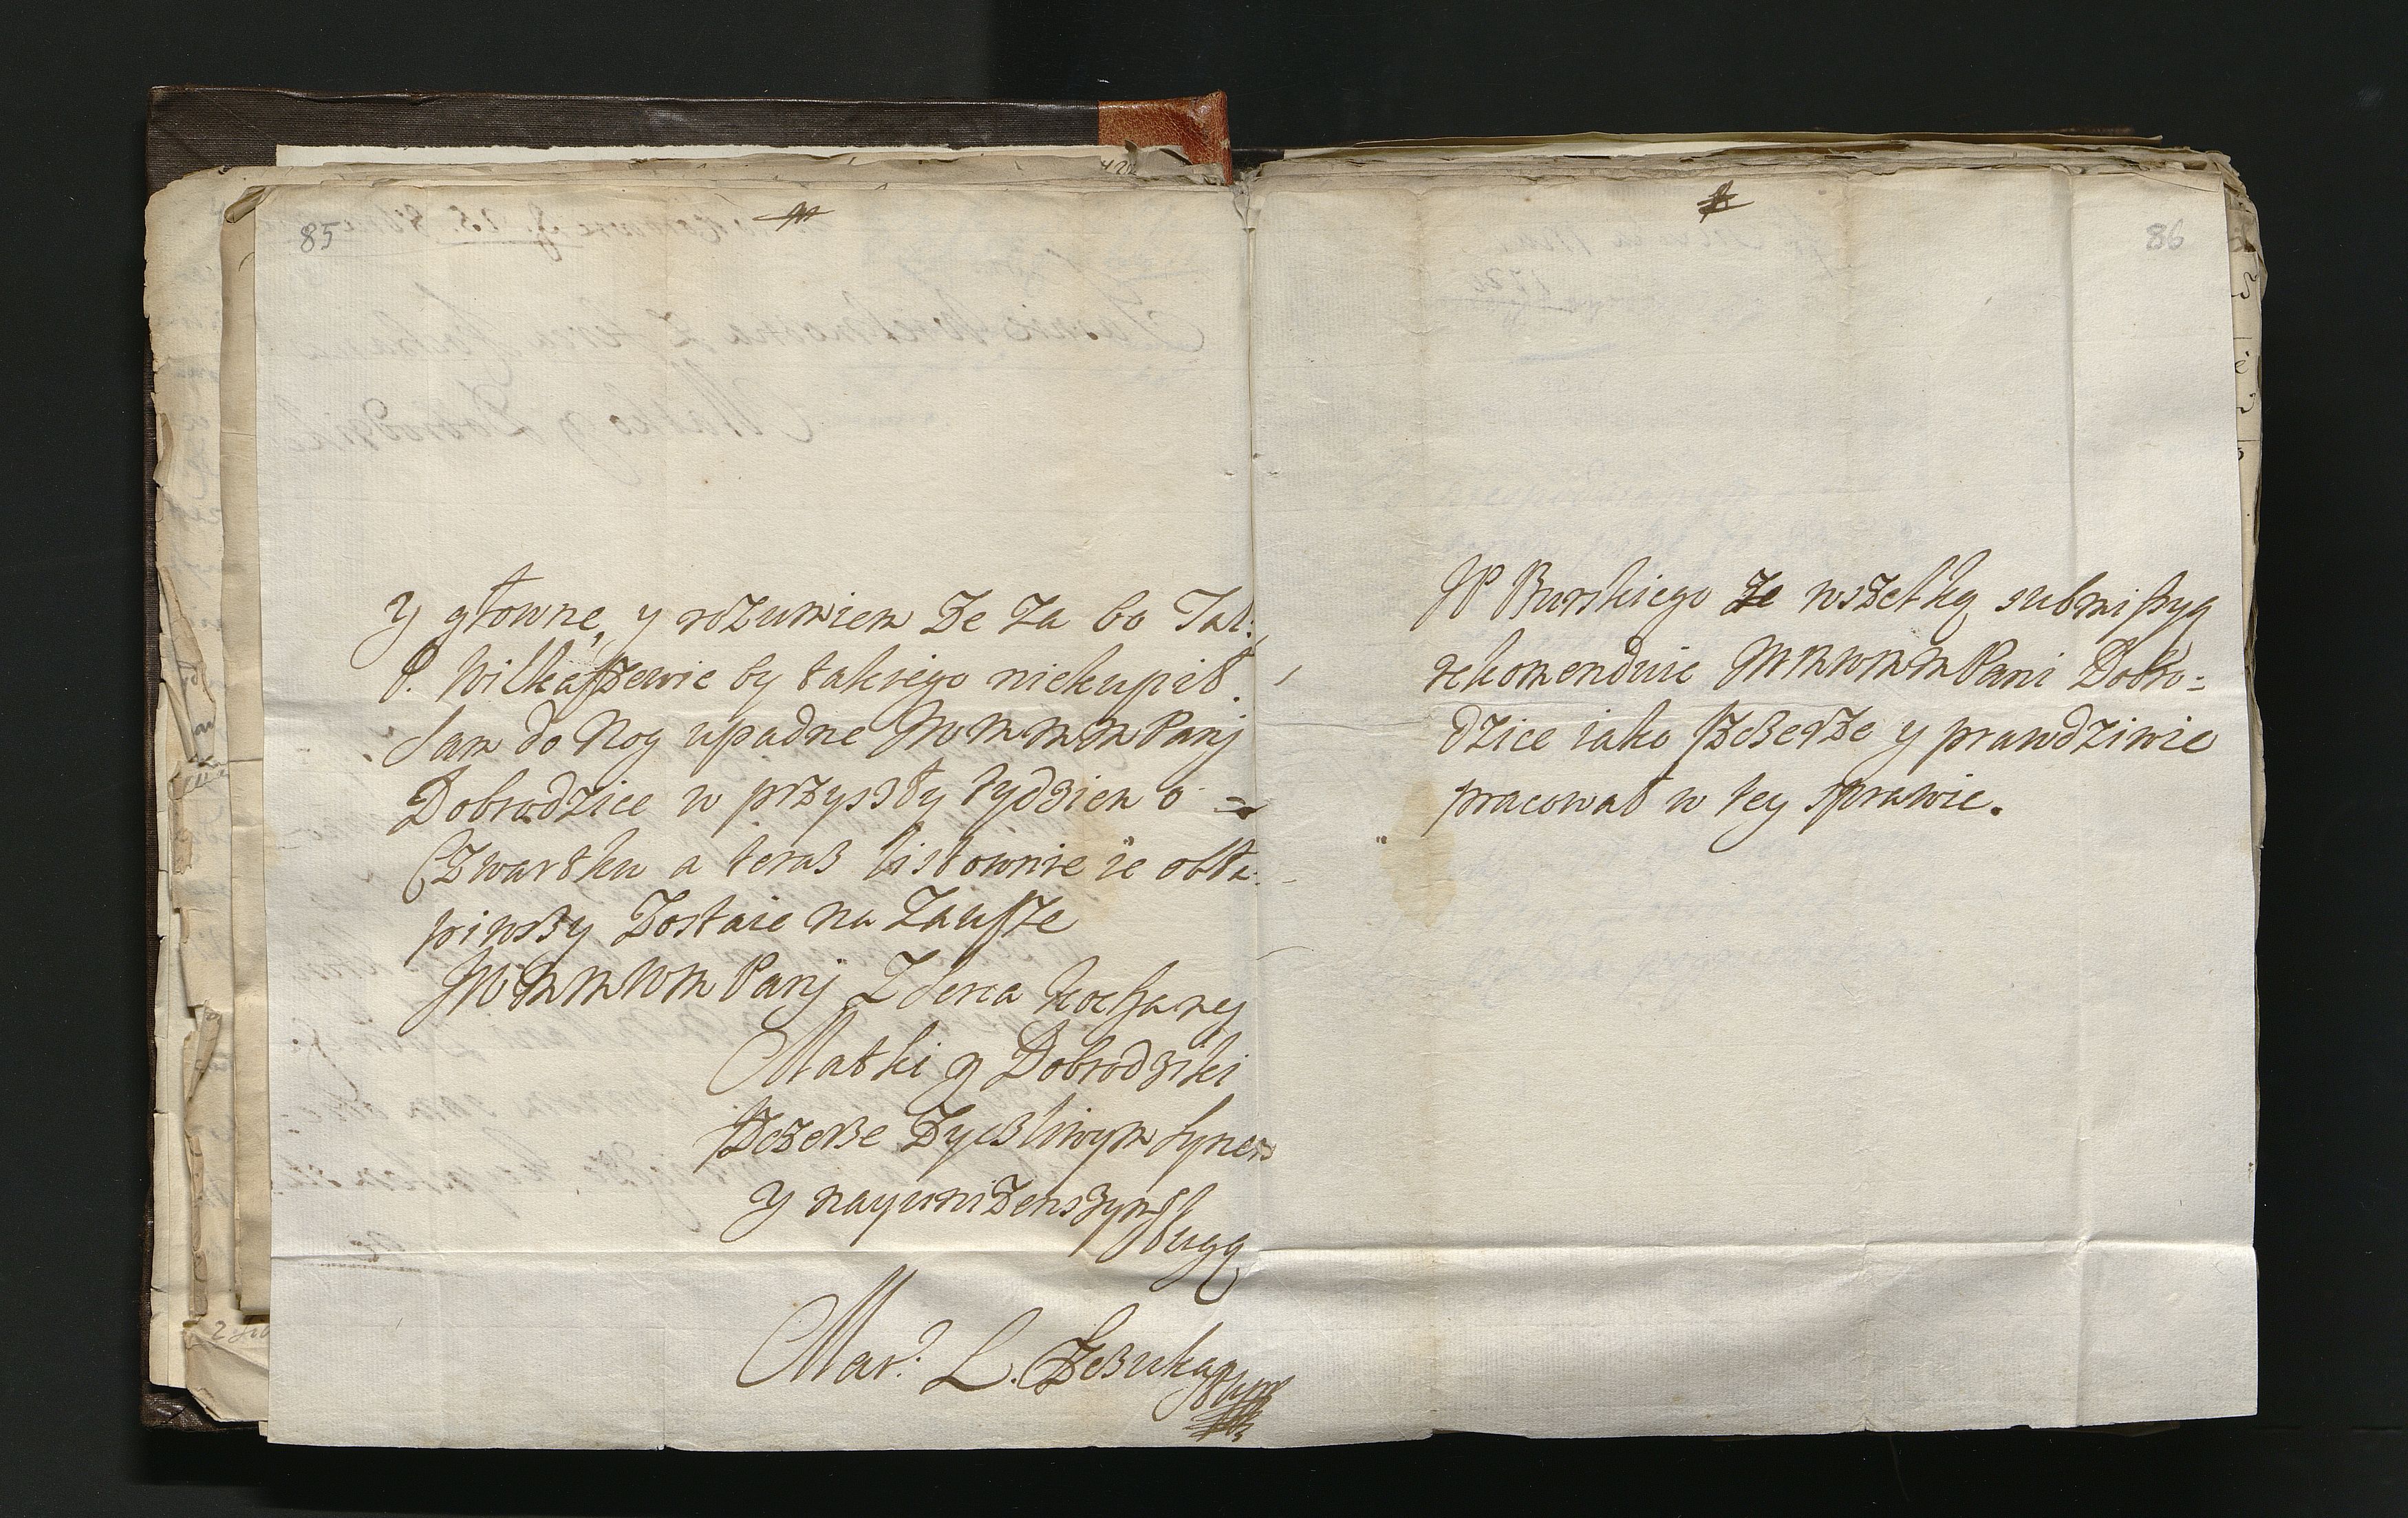 85
Y głowne, y rozumiem że za 60 Tal:
P. Wilkaszewie by takiego niekupił.
Sam do Nog upadne WMMMM Panj
Dobrodzice w przyszły tydzien o =
Czwartku a teraz listownie ie obła:
piwszy Zostaie na Zausze
JWMMWM Panj Z Serca kochaney
Matki y Dobrodziki
szczerze Zyczliwym Synem
Y nayunizenszym
sługą
Mar: L.
86
JP Burskiego ze wszelką submissyą
rekomenduie WMWMM Pani Dobro=
dzice iako szczerze y prawdziwie
pracował w tey sprawie.